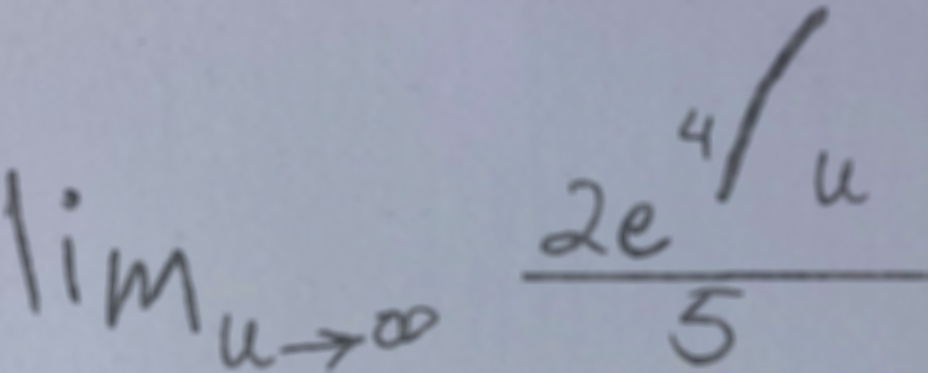 lim_{u→∞} \frac{2e^{4/u}}{5}